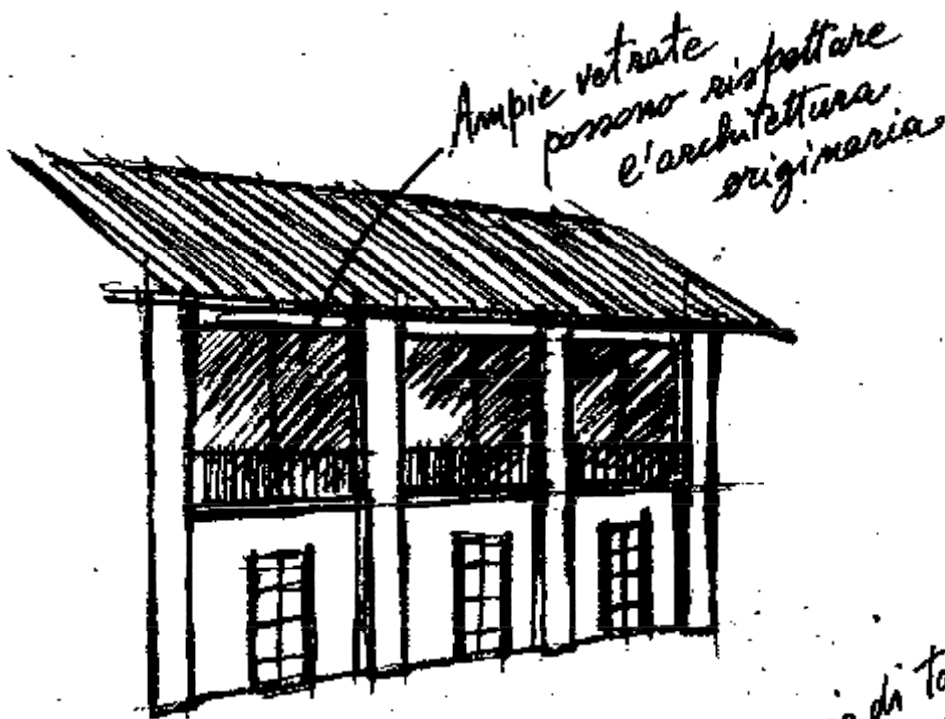 Ampie vetrate
possono rispettare
l'architettura
originaria
di